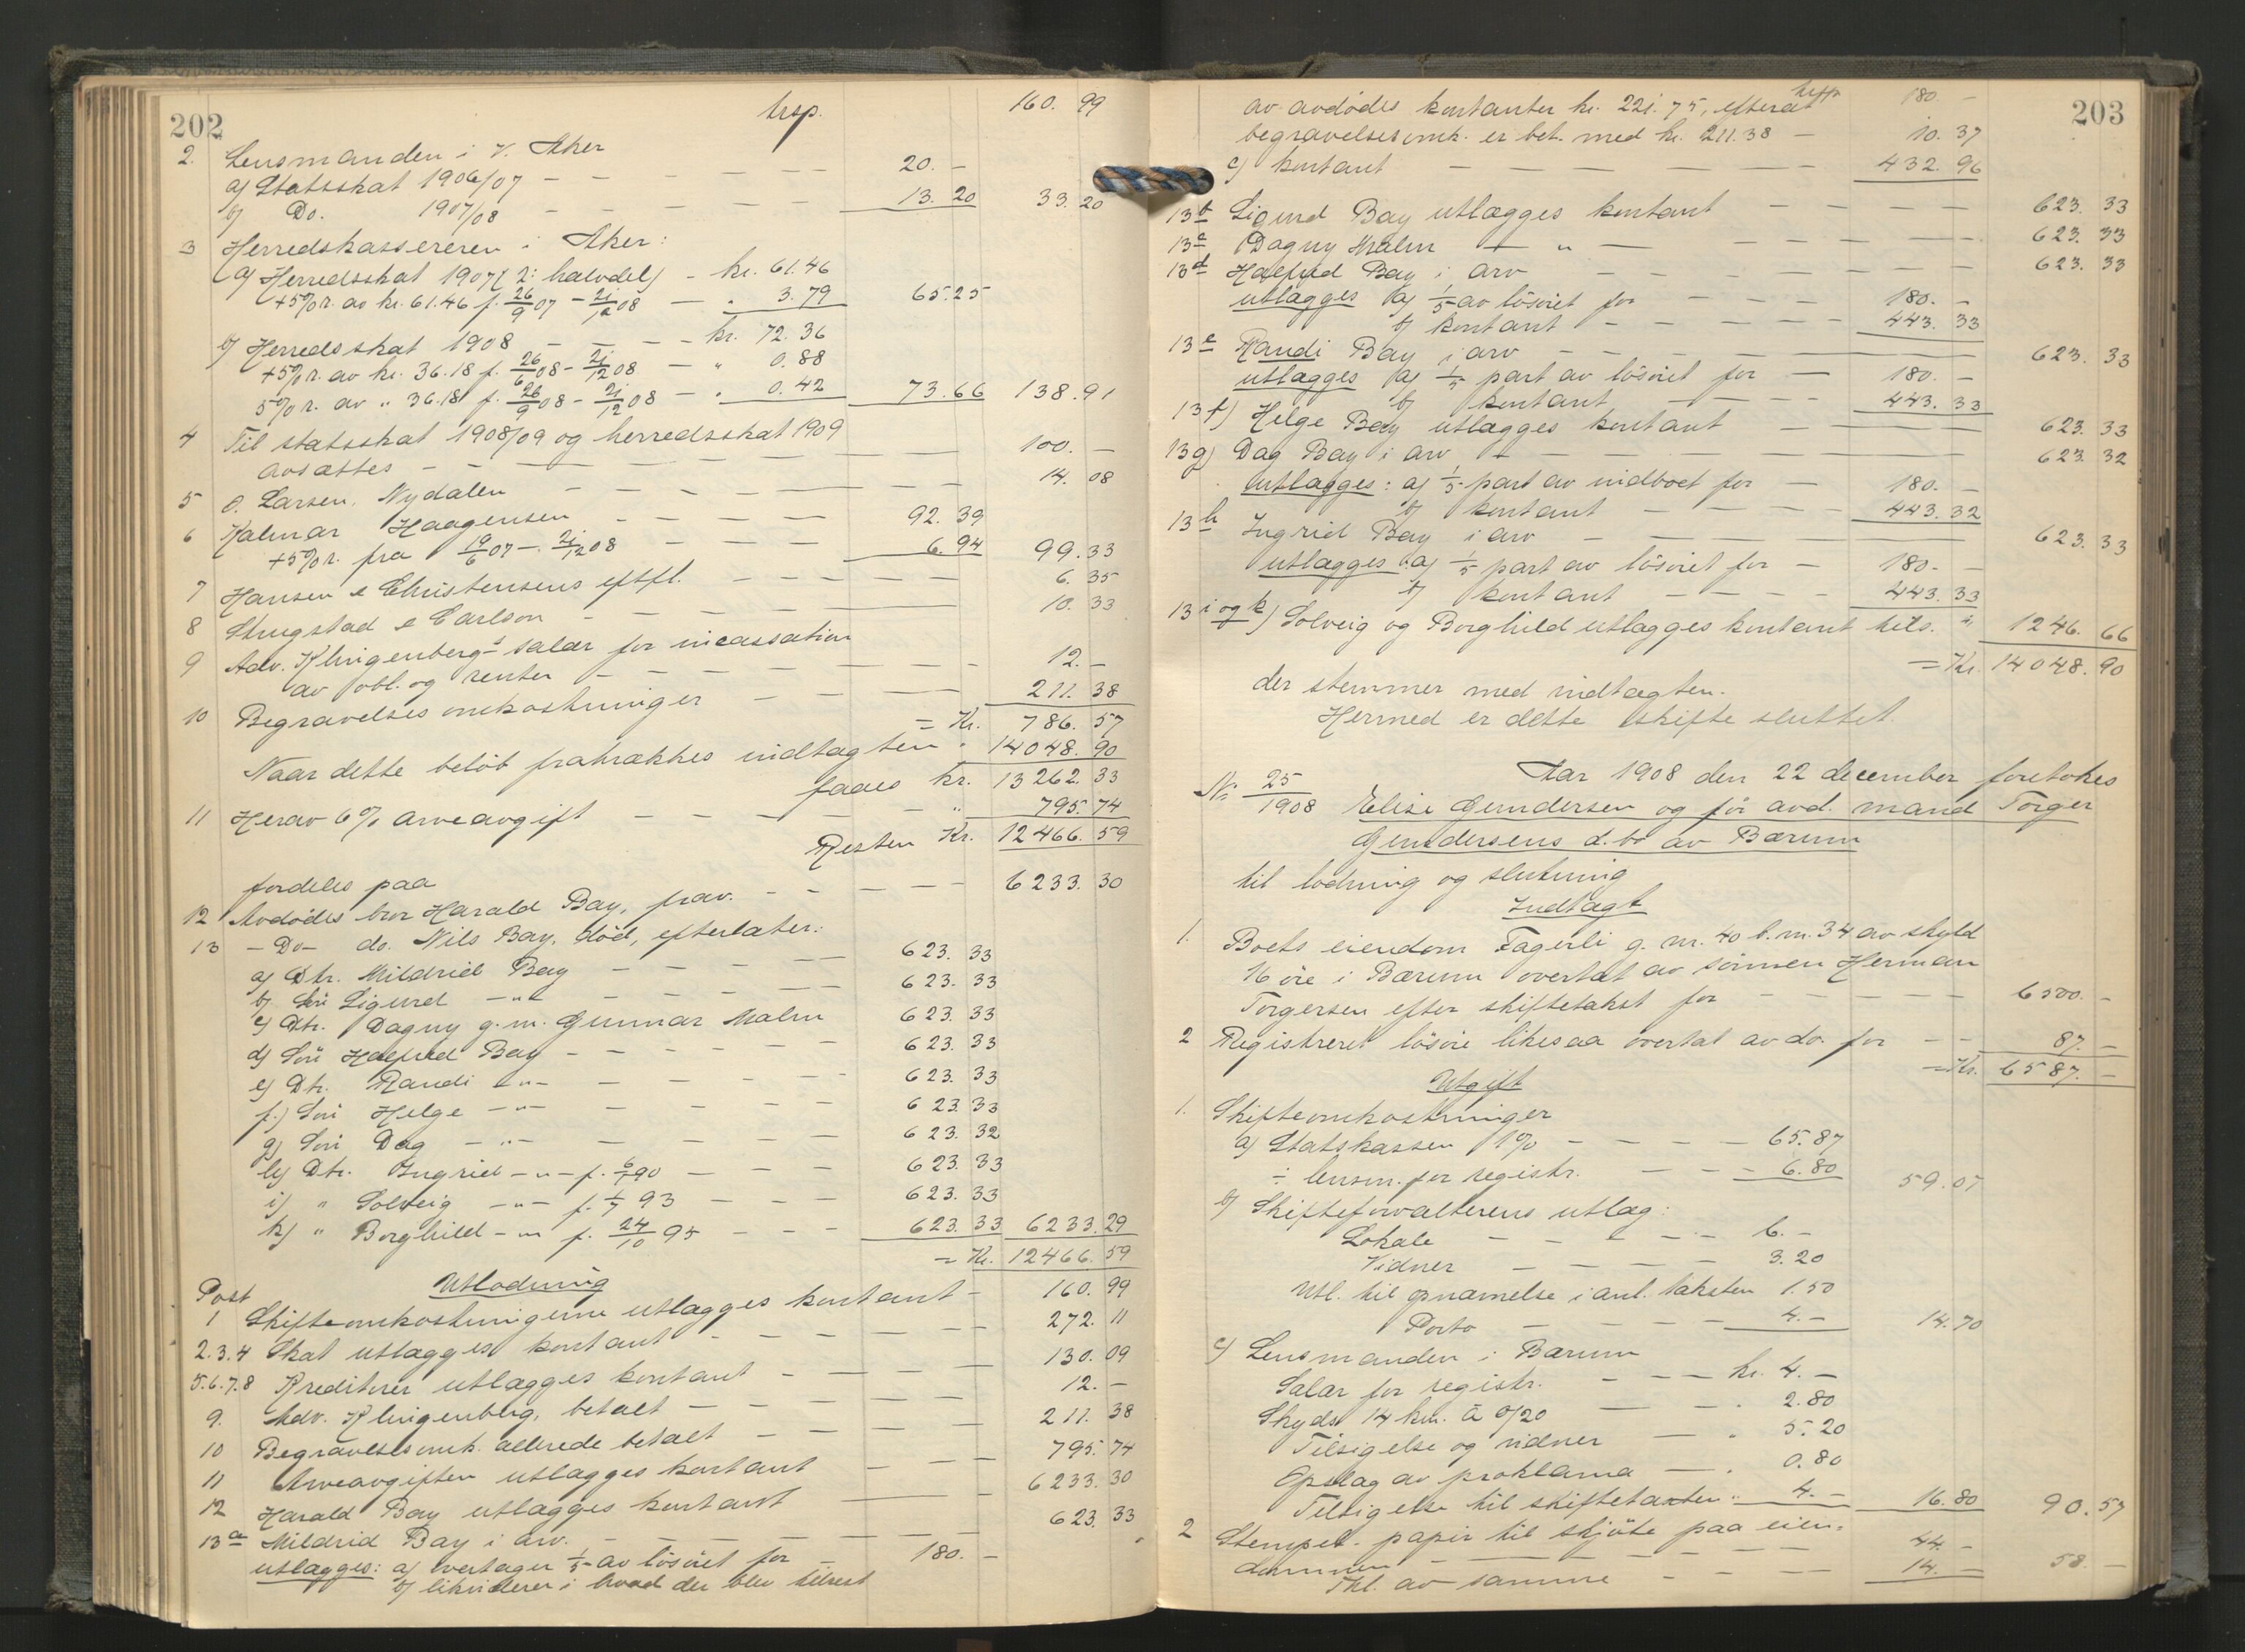 202
trsp. 160. 99
2. Lensmanden i V. Aker
a) Statsskat 1906/07 - - - - - - 20. -
b) Do. 1907/08 - - - - - - 13. 20 33. 20
3 Herredskassereren i Aker:
a) Herredsskat 1907 (2: halvdel) - kr. 61.46
+5% r. av kr. 61.46 f. 26/9 07 - 21/12 08 - " 3.79 65.25
b) Herredsskat 1908 - - - - kr. 72.36
+5% r. av kr. 36.18 f. 26/6 08 - 21/12 08 - " 0.88
5% r. av " 36.18 f. 26/9 08 - 21/12 08 - " 0.42 73.66 138.91
4 Til statsskat 1908/09 og herredsskat 1909
avsættes - - - - - - 100. -
5 O. Larsen, Nydalen - - - - - - 14. 08
6 Kalmar Haagensen - - - - 92. 39
+5% r. fra 19/6 07 - 21/12 08 - - - 6. 94 99. 33
7 Hansen & Christensens eftfl. - - - - - 6. 35
8 Strugstad & Carlson - - - - - 10. 33
9 Adv. Klingenbergs salær for incassation
av obl. og renter - - - - - 12. -
10 Begravelsesomkostninger - - - - 211. 38
= Kr. 786. 57
Naar dette beløb fratrækkes indtægten " 14048. 90
faaes kr. 13262. 33
11 Herav 6% arveavgift - - - - - " 795. 74
Resten Kr. 12466. 59
fordeles paa
12 Avdødes bror Harald Bay, frav. - - - - - 6233. 30
13 - Do - do. Nils Bay, død, efterlater:
a) Dtr. Mildrid Bay - - - - 623. 33
b) Søn Sigurd - " - - - - - 623. 33
c) Dtr. Dagny g. m. Gunnar Malm 623. 33
d) Søn Halfred Bay - - - - - 623. 33
e) Dtr. Randi - " - - - - - 623. 33
f.) Søn Helge - " - - - - - 623. 33
g) Søn Dag - " - - - - - 623. 32
h) Dtr. Ingrid - " - f. 6/7 90 - - - 623. 33
i) " Solveig - " - f. 1/7 93 - - - 623. 33
k) " Borghild - " - f. 24/10 95 - - - 623. 33 6233. 29
= Kr. 12466. 59
Utlodning
Post
1 Skifteomkostningerne utlægges kontant - 160. 99
2.3.4 Skat utlægges kontant - - - - - - 272. 11
5.6.7.8 Kreditorer utlægges kontant - - - - 130. 09
9. Adv. Klingenberg, betalt - - - - - 12. -
10 Begravelsesomk. allerede betalt - - - - 211. 38
11 Arveavgiften utlægges kontant - - - 795. 74
12 Harald Bay utlægges kontant - - - 6233. 30
13 a Mildrid Bay i arv. - - - - - - 623. 33
utlægges: a) overtager 1/5 av løsøret for - 180. -
b) likviderer i hvad der blev tilrest
203
trsp. 180. -
av avdødes kontanter kr. 221.75, efterat
begravelsesomk. er bet. med kr. 211.38 - 10. 37
c) kontant - - - - - - 432. 96
13 b Sigurd Bay utlægges kontant - - - - - 623. 33
13 c Dagny Malm - " - - - - - 623. 33
13 d Halfred Bay i arv - - - - - - - 623. 33
utlægges a) 1/5 av løsøret for - - - - 180. -
b) kontant - - - - - - 443. 33
13 e Randi Bay i arv - - - - - - 623. 33
utlægges a) 1/5 part av løsøret for - 180. -
b) kontant - - - - 443. 33
13 f) Helge Bay utlægges kontant - - - - 623. 33
13 g) Dag Bay i arv - - - - - - 623. 32
utlægges: a) 1/5 part av indboet for - 180. -
b) kontant - - - - 443. 32
13 h Ingrid Bay i arv - - - - - 623. 33
utlægges a) 1/5 part av løsøret for - 180. -
b) kontant - - - - 443. 33
13 i og k) Solveig og Borghild utlægges kontant tils. " 1246. 66
= Kr. 14048. 90
der stemmer med indtægten.
Hermed er dette skifte sluttet.
Aar 1908 den 22 december foretokes
No 25/1908 Elise Gundersen og før avd. mand Torger
Gundersens d.bo av Bærum
til lodning og slutning
Indtægt
1. Boets eiendom Fagerli g. nr. 40 b. nr. 34 av skyld
16 øre i Bærum overtat av sønnen Herman
Torgersen efter skiftetakst for - - - - - 6500. -
2 Registreret løsøre likesaa overtat av do. for - - 87. -
= Kr. 6587. -
Utgift
1. Skifteomkostninger
a) Statskassen 1% - - - - 65.87
÷ lensm. for registr. - - - 6.80 59.07
b) Skifteforvalterens utlæg:
Lokale - - - - - 6. -
Vidner - - - - - 3.20
Utl. til opnævnelse i anl. taksten 1.50
Porto - - - - - 4. - 14.70
c) Lensmanden i Bærum
Salær for registr. - - - kr. 4. -
Skyds 14 km. à 0/20 - - " 2.80
Tilsigelse og vidner - " 5.20
Opslag av proklama - " 0.80
Tilsigelse til skiftetaksten " 4. - 16.80 90.57
2 Stempel. papir til skjøte paa eien-
dommen - - - - - - - 44. -
Thl. av samme - - - - 14. - 58. -